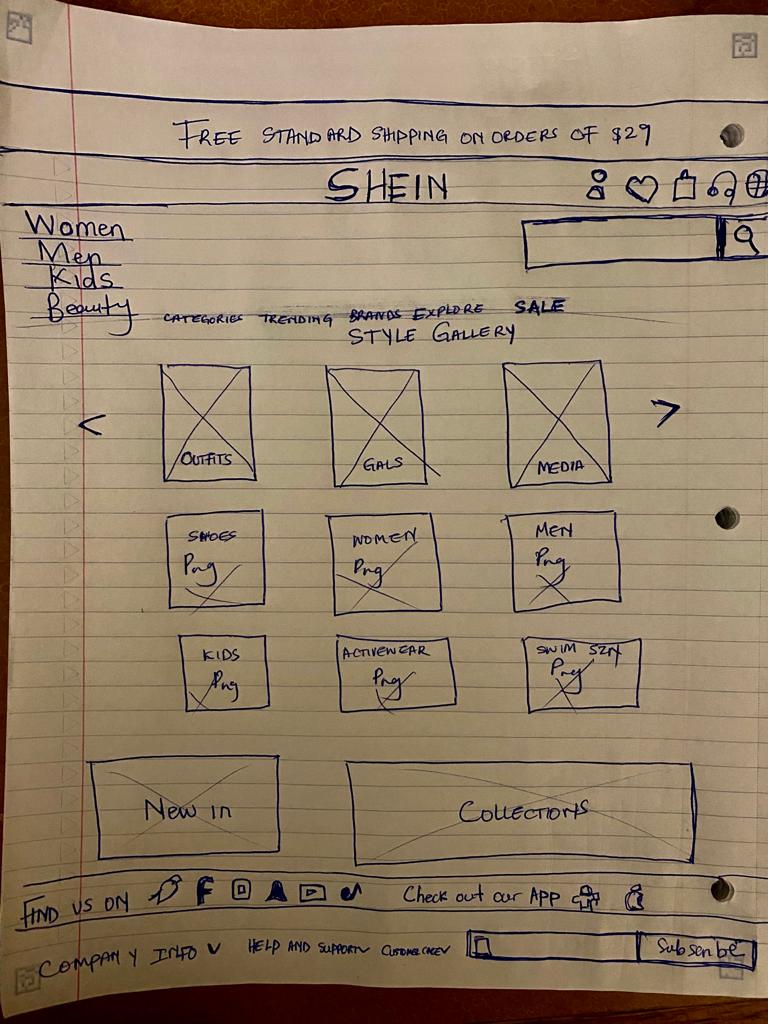 FREE STANDARD SHIPPING ON ORDERS OF $29
SHEIN
Women
Men
Kids
Beauty
CATEGORIES TRENDING BRANDS EXPLORE SALE
STYLE GALLERY
< >
OUTFITS GALS MEDIA
SHOES WOMEN MEN
Png Png Png
KIDS ACTIVEWEAR SWIM SZN
Png Png Png
New in COLLECTIONS
FIND US ON Check out our App
COMPANY INFO HELP AND SUPPORT CUSTOMER CARE Subscribe